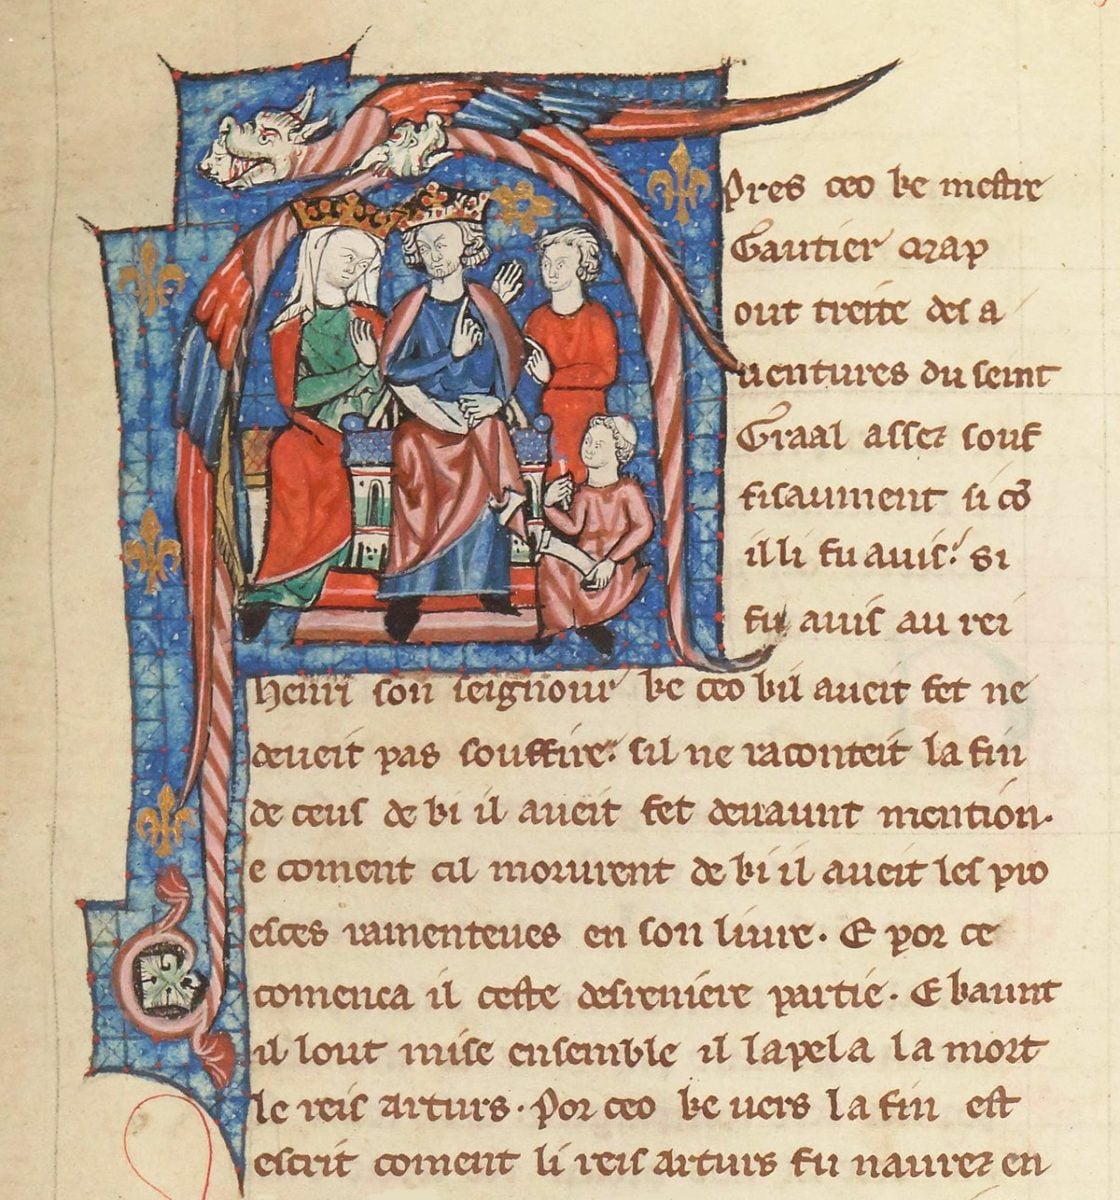 Apres ceo ke mestre
Gautier map
out treite des a
uentures du seint
Graal assez souf
fisaument si cō
il li fu auis. si
fu auis au rei
henri son seignour ke ceo kil aueit fet ne
deueit pas souffire. sil ne raconteit la fin
de ceus de ki il aueit fet deuaunt mention.
e coment cil morurent de ki il aueit les pro
esces ramenteues en son liure. E por ce
comenca il ceste desreniere partie. E kaunt
il lout mise ensemble il lapela la mort
le reis arturs. Por ceo ke uers la fin est
escrit coment li reis arturs fu naurez en